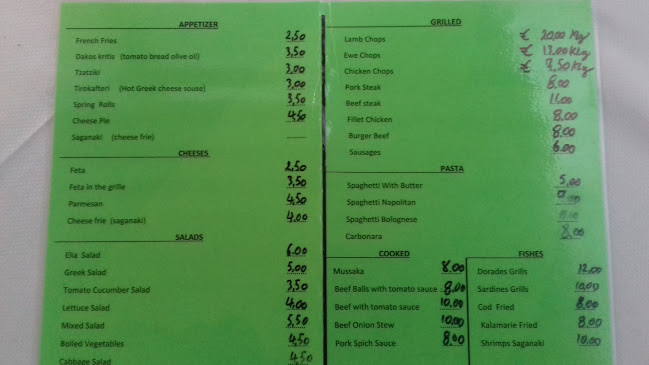 APPETIZER
French Fries 2,50
Dakos kritis (tomato bread olive oil) 3,50
Tzatziki 3,00
Tirokafteri (Hot Greek cheese souse) 3,00
Spring Rolls 3,50
Cheese Pie 4,50
Saganaki (cheese frie)
CHEESES
Feta 2,50
Feta in the grille 3,50
Parmesan 4,50
Cheese frie (saganaki) 4,00
SALADS
Elia Salad 6,00
Greek Salad 5,00
Tomato Cucumber Salad 3,50
Lettuce Salad 4,00
Mixed Salad 5,50
Boiled Vegetables 4,50
Cabbage Salad 4,50
GRILLED
Lamb Chops € 20,00 Kg
Ewe Chops € 13,00 Kg
Chicken Chops € 9,50 Kg
Pork Steak 8,00
Beef steak 11,00
Fillet Chicken 8,00
Burger Beef 8,00
Sausages 6,00
PASTA
Spaghetti With Butter 5,00
Spaghetti Napolitan
Spaghetti Bolognese 8,00
Carbonara 8,00
COOKED
Mussaka 8,00
Beef Balls with tomato sauce 8,00
Beef with tomato sauce 10,00
Beef Onion Stew 10,00
Pork Spich Sauce 8,00
FISHES
Dorades Grills 12,00
Sardines Grills 10,00
Cod Fried 8,00
Kalamarie Fried 8,00
Shrimps Saganaki 10,00